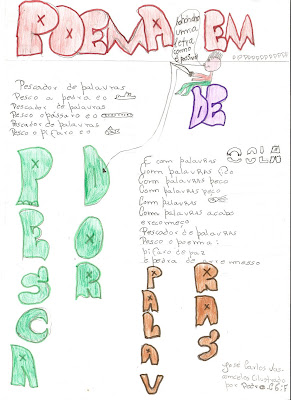 POEMA EM
DE
Pescador de palavras
Pesco a pedra e o
Pescador de palavras
Pesco o pássaro e o
Pescador de palavras
Pesco o pífaro e o
E com palavras
Com palavras
Com palavras peço
Com palavras peço
Com palavras
Com palavras acabo
e recomeço
Pescador de palavras
Pesco o poema:
pífaro de paz
PESCA
DOR
PALAV
RAS
José Carlos Vas
ilustrado
por Pedro